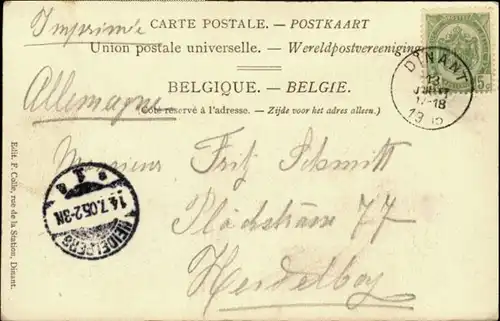 Imprimé
CARTE POSTALE. — POSTKAART
Union postale universelle. — Wereldpostvereeniging
BELGIQUE. — BELGIE.
Allemagne
(Côté réservé à l'adresse. — Zijde voor het adres alleen.)
DINANT
13
17-18
5c
Monsieur Fritz Schmitt
77
Heidelberg
HEIDELBERG
14.7.05.2-3N
Edit. F. Colle, rue de la Station, Dinant.